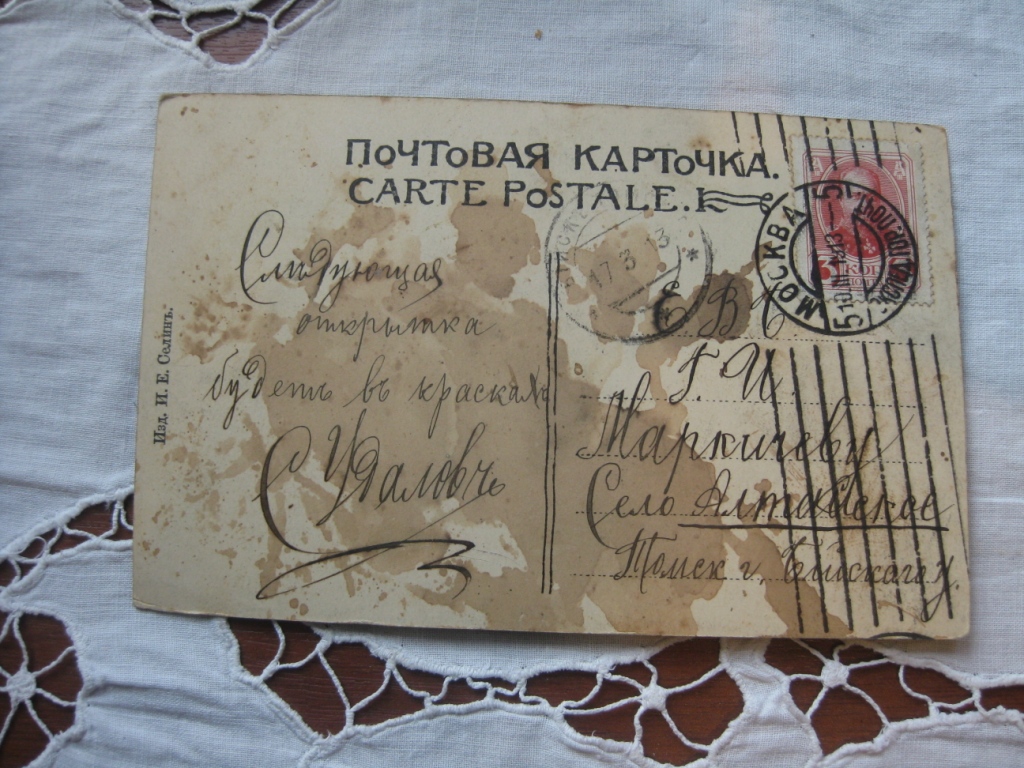 ПОЧТОВАЯ КАРТОЧКА.
CARTE POSTALE.
Слѣдующая
открытка
будетъ въ краскахъ
С Удаловъ
Изд. И. Е. Селинъ.
Е В С
Г. И.
Маркичеву
Село Алтайское
Томск г. Бійскаго у.
МОСКВА
17 3 13
3 КОП